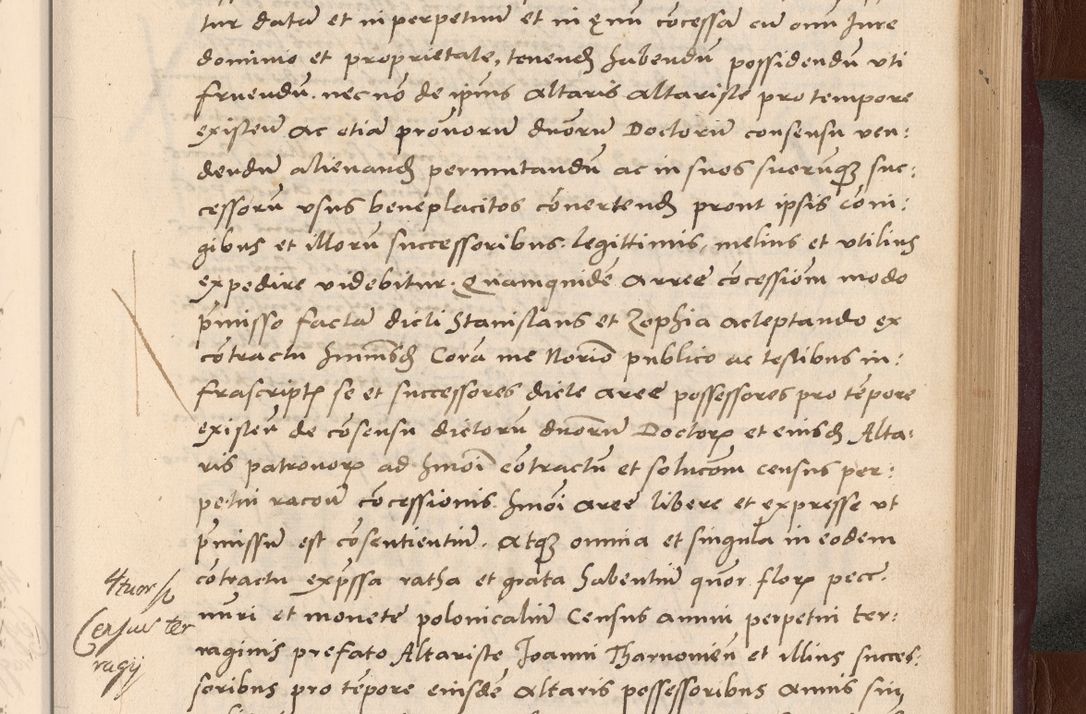 tur datam et in perpetuum et in ęvu cōcessā cū omi Jure
dominio et proprietate, tenend habendū possidendū vti
fruendū. nec nō de ipius Altaris Altariste pro tempore
existeñ ac etiā provoru duorū Doctorū consensu ven:
dendū alienand permutandū ac in suos suorūq3 suc:
cessorū vsus beneplacitos cōvertend prout ipsis Coniu:
gibus et illorū successoribus legittimis, melius et vtilius
expedire videbitur. Quamquidē Aree cōcessiōem modo
pmisso factā dicti Stanislaus et Zophia acceptando ex
cōtractu hmōi Corā me Norio publico ac testibus in:
frascriptis se et successores dicte aree possessores pro tēpore
existeñ de cōsensu dictorū duorū Doctorum et eiusd Alta:
ris patronorum ad hmōi cōtractū et solucōem census per:
petui racōe cōcessionis hmōi aree libere et expresse vt
pmissum est cōsentientiū. Atq3 omnia et singula in eodem
cōtractu expssa ratha et grata habentiū quor flor pecc.
nuri et monete polonicaliū Census annui perpetui ter:
raginis prefato Altariste Joanni Tharnovieñ et illius succes:
soribus pro tēpore eiusdē Altaris possessoribus annis sin
4tuor fl
Census ter
ragij